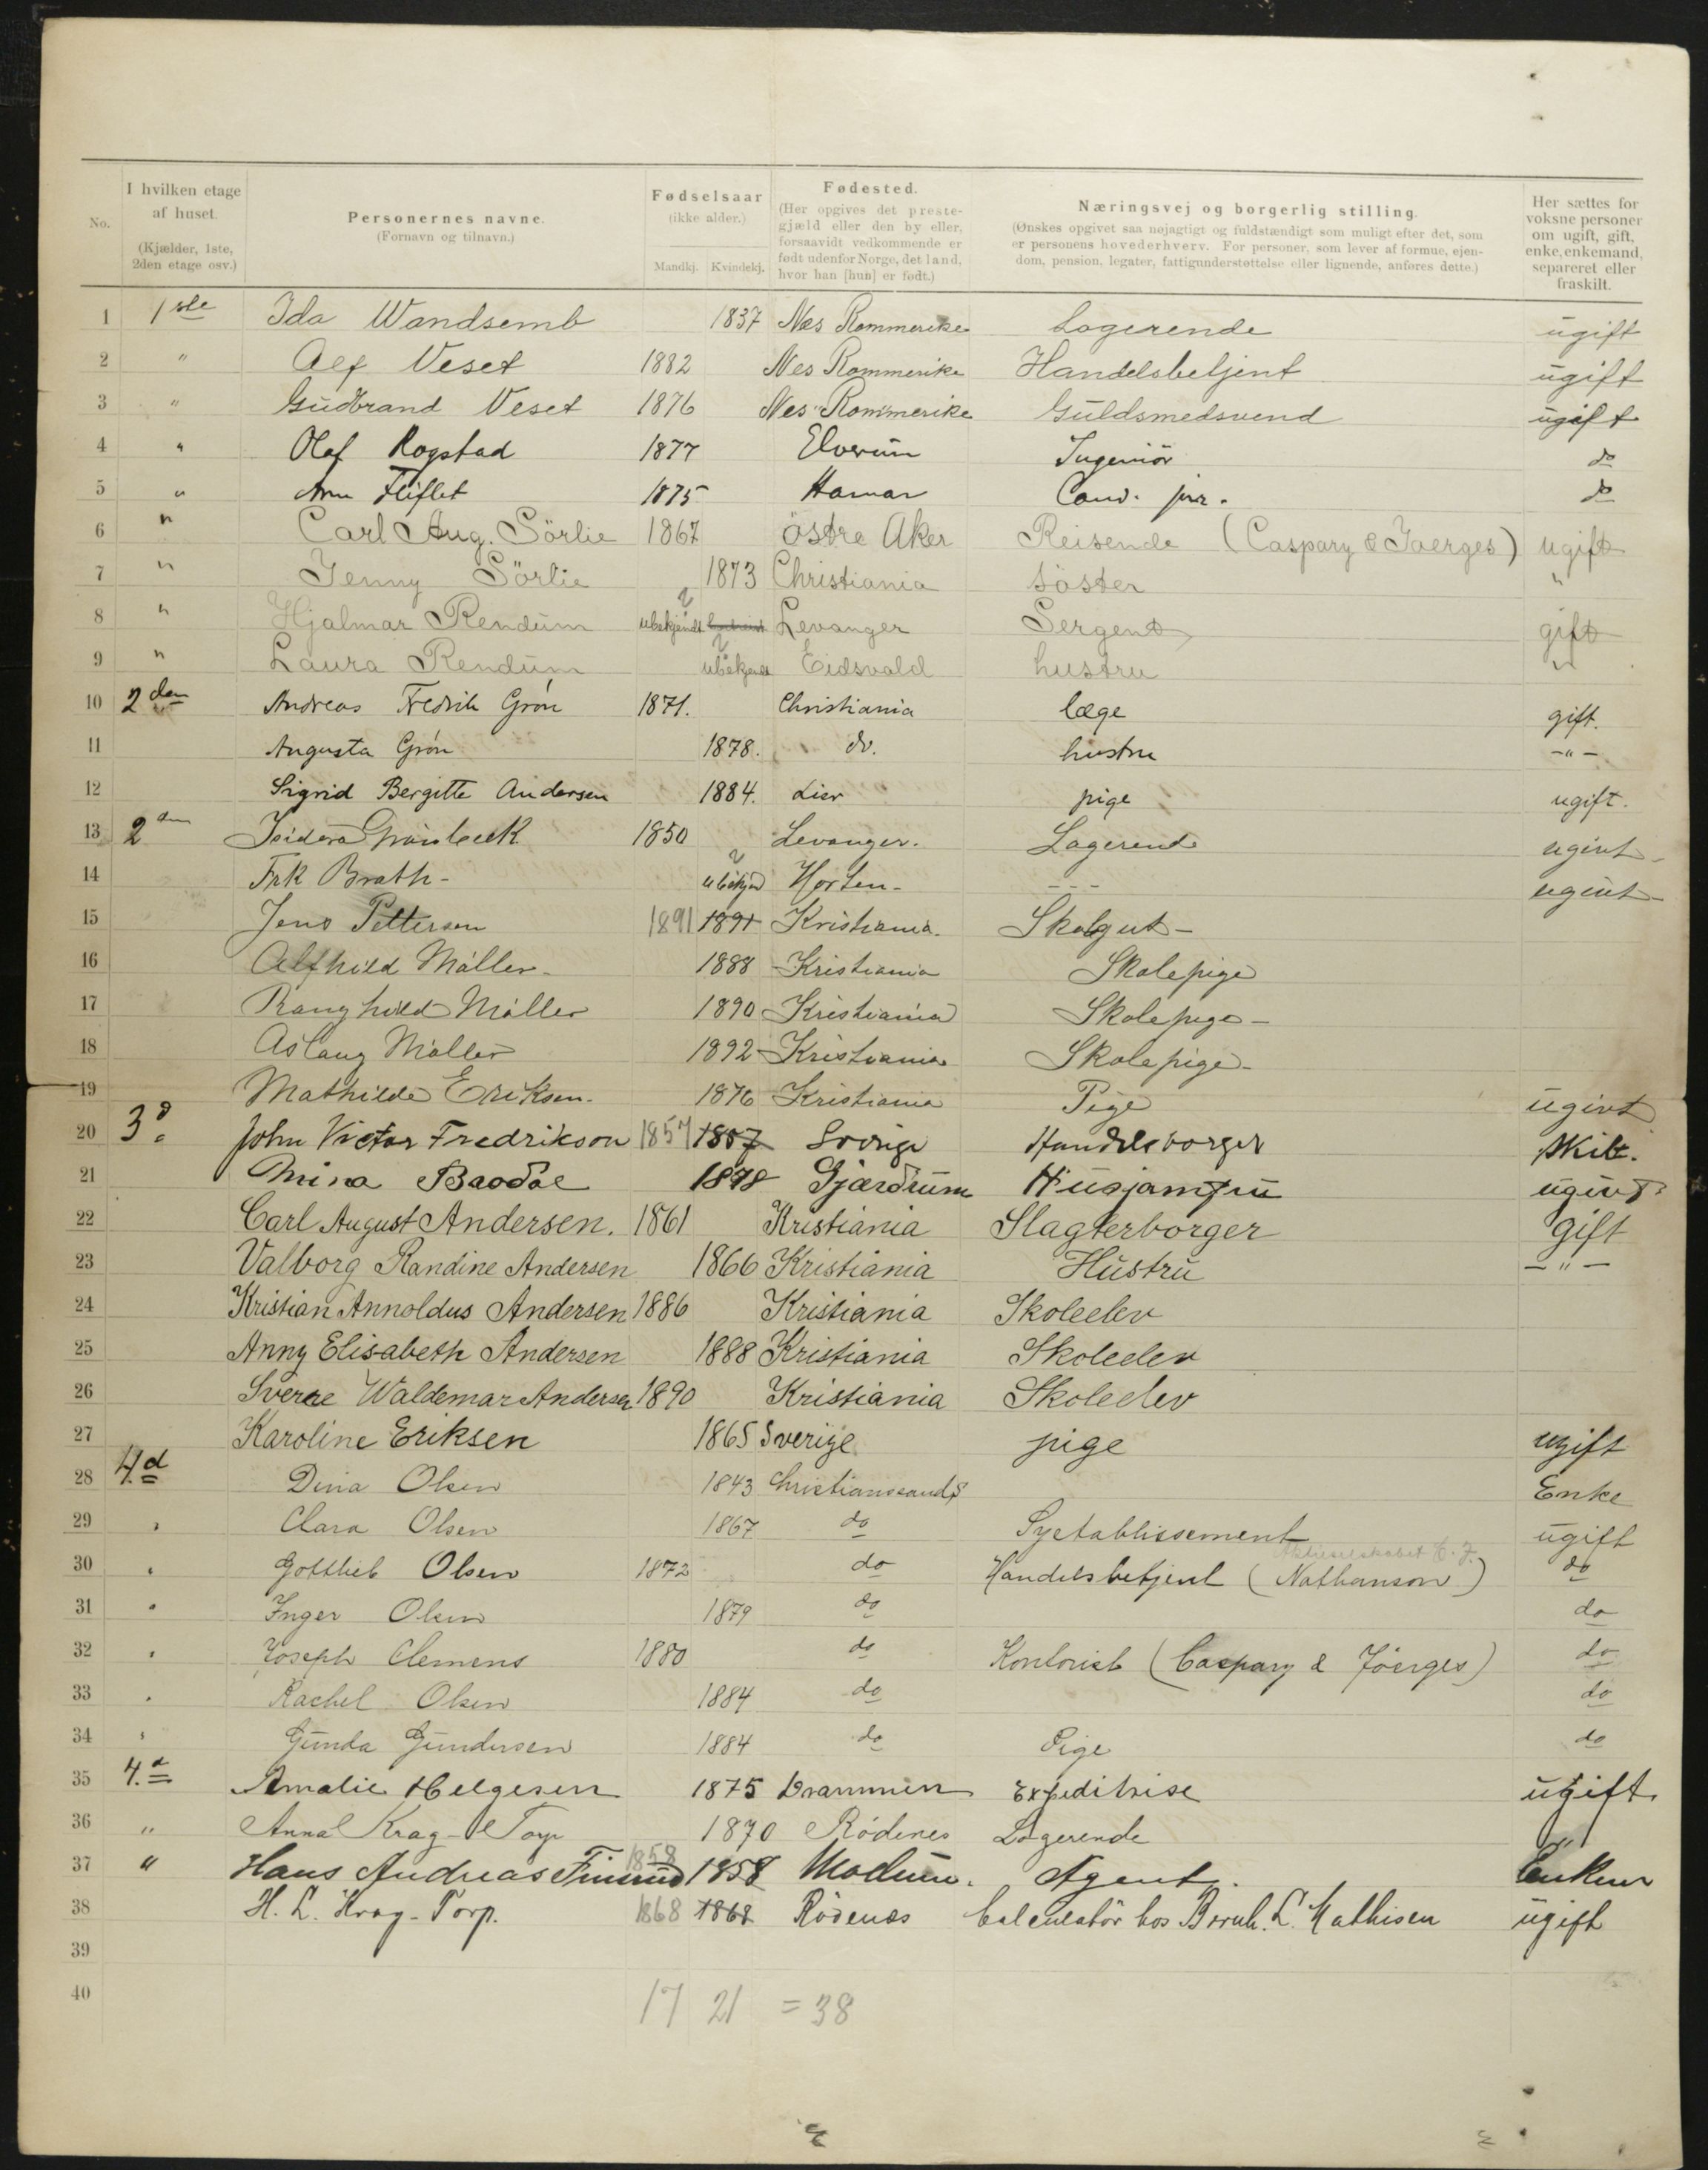 No.
I hvilken etage af huset. (Kjælder, 1ste, 2den etage osv.)
Personernes navne. (Fornavn og tilnavn.)
Fødselsaar (ikke alder.) Mandkj. Kvindekj.
Fødested. (Her opgives det prestegjæld eller den by eller, forsaavidt vedkommende er født udenfor Norge, det land, hvor han [hun] er født.)
Næringsvej og borgerlig stilling. (Ønskes opgivet saa nøjagtigt og fuldstændigt som muligt efter det, som er personens hovederhverv. For personer, som lever af formue, ejendom, pension, legater, fattigunderstøttelse eller lignende, anføres dette.)
Her sættes for voksne personer om ugift, gift, enke, enkemand, separeret eller fraskilt.
1 1ste Ida Wandsemb 1837 Næs Rommerike Logerende ugift
2 " Alf Veset 1882 Nes Rommerike Handelsbetjent ugift
3 " Gudbrand Veset 1876 Nes Rommerike Guldsmedsvend ugift
4 " Olaf Rogstad 1877 Elverum Ingeniör do
5 " Arne Fliflet 1875 Hamar Cand. jur. do
6 " Carl Aug. Sörlie 1867 östre Aker Reisende (Caspary & Joerges) ugift
7 " Jenny Sörlie 1873 Christiania söster "
8 " Hjalmar Rendum ubekjendt Levanger Sergent gift
9 " Laura Rendum ubekjendt Eidsvold hustru "
10 2den Andreas Fredrik Grøn 1871. Christiania læge gift.
11 Augusta Grøn 1878. do. hustru -"-
12 Sigrid Bergitte Andersen 1884. Lier pige ugift.
13 2den Isidora Grønbeck 1850 Levanger. Logerende ugivt-
14 Frk Brath- ubekjend Horten- --- ugivt-
15 Jens Pettersen 1891 1891 Kristiania. Skolgut-
16 Alfhild Møller- 1888 Kristiania Skolepige
17 Ranghild Møller 1890 Kristiania Skolepige-
18 Aslaug Møller 1892 Kristiania Skolepige-
19 Mathilde Eriksen- 1876 Kristiania Pige ugivt
20 3d John Victor Fredrikson 1857 1857 Sverige Handelsborger skilt.
21 Mina Baadse 1878 Gjærdrum Husjamfru ugivt
22 Carl August Andersen. 1861 Kristiania Slagterborger gift
23 Valborg Randine Andersen 1866 Kristiania Hustru -"-
24 Kristian Annoldus Andersen 1886 Kristiania Skoleelev
25 Anny Elisabeth Andersen 1888 Kristiania Skoleelev
26 Sverre Waldemar Andersen 1890 Kristiania Skoleelev
27 Karoline Eriksen 1865 Sverige pige ugift
28 4.d Dina Olsen 1843 Christianssands Enke
29 " Clara Olsen 1867 do Syetablissement ugift
30 " Gottlieb Olsen 1872 do Handelsbetjent (Aktieselskabet E. F. Nathanson) do
31 " Inger Olsen 1879 do do
32 " Joseph Clemens 1880 do Kontorist (Caspary & Jöerges) do
33 " Rachel Olsen 1884 do do
34 " Gunda Gundersen 1884 do Pige do
35 4.d Amalie Helgesen 1875 Drammen Expeditrise ugift.
36 " Anna Krag-Torp 1870 Rödenes Logerende "
37 " Hans Andreas 1858 1858 Modum. Agent.
38 H. L. Krag-Torp. 1868 1868 Rödenes Calculatör hos Bernh. L. Mathisen ugift
39
40 17 21 = 38